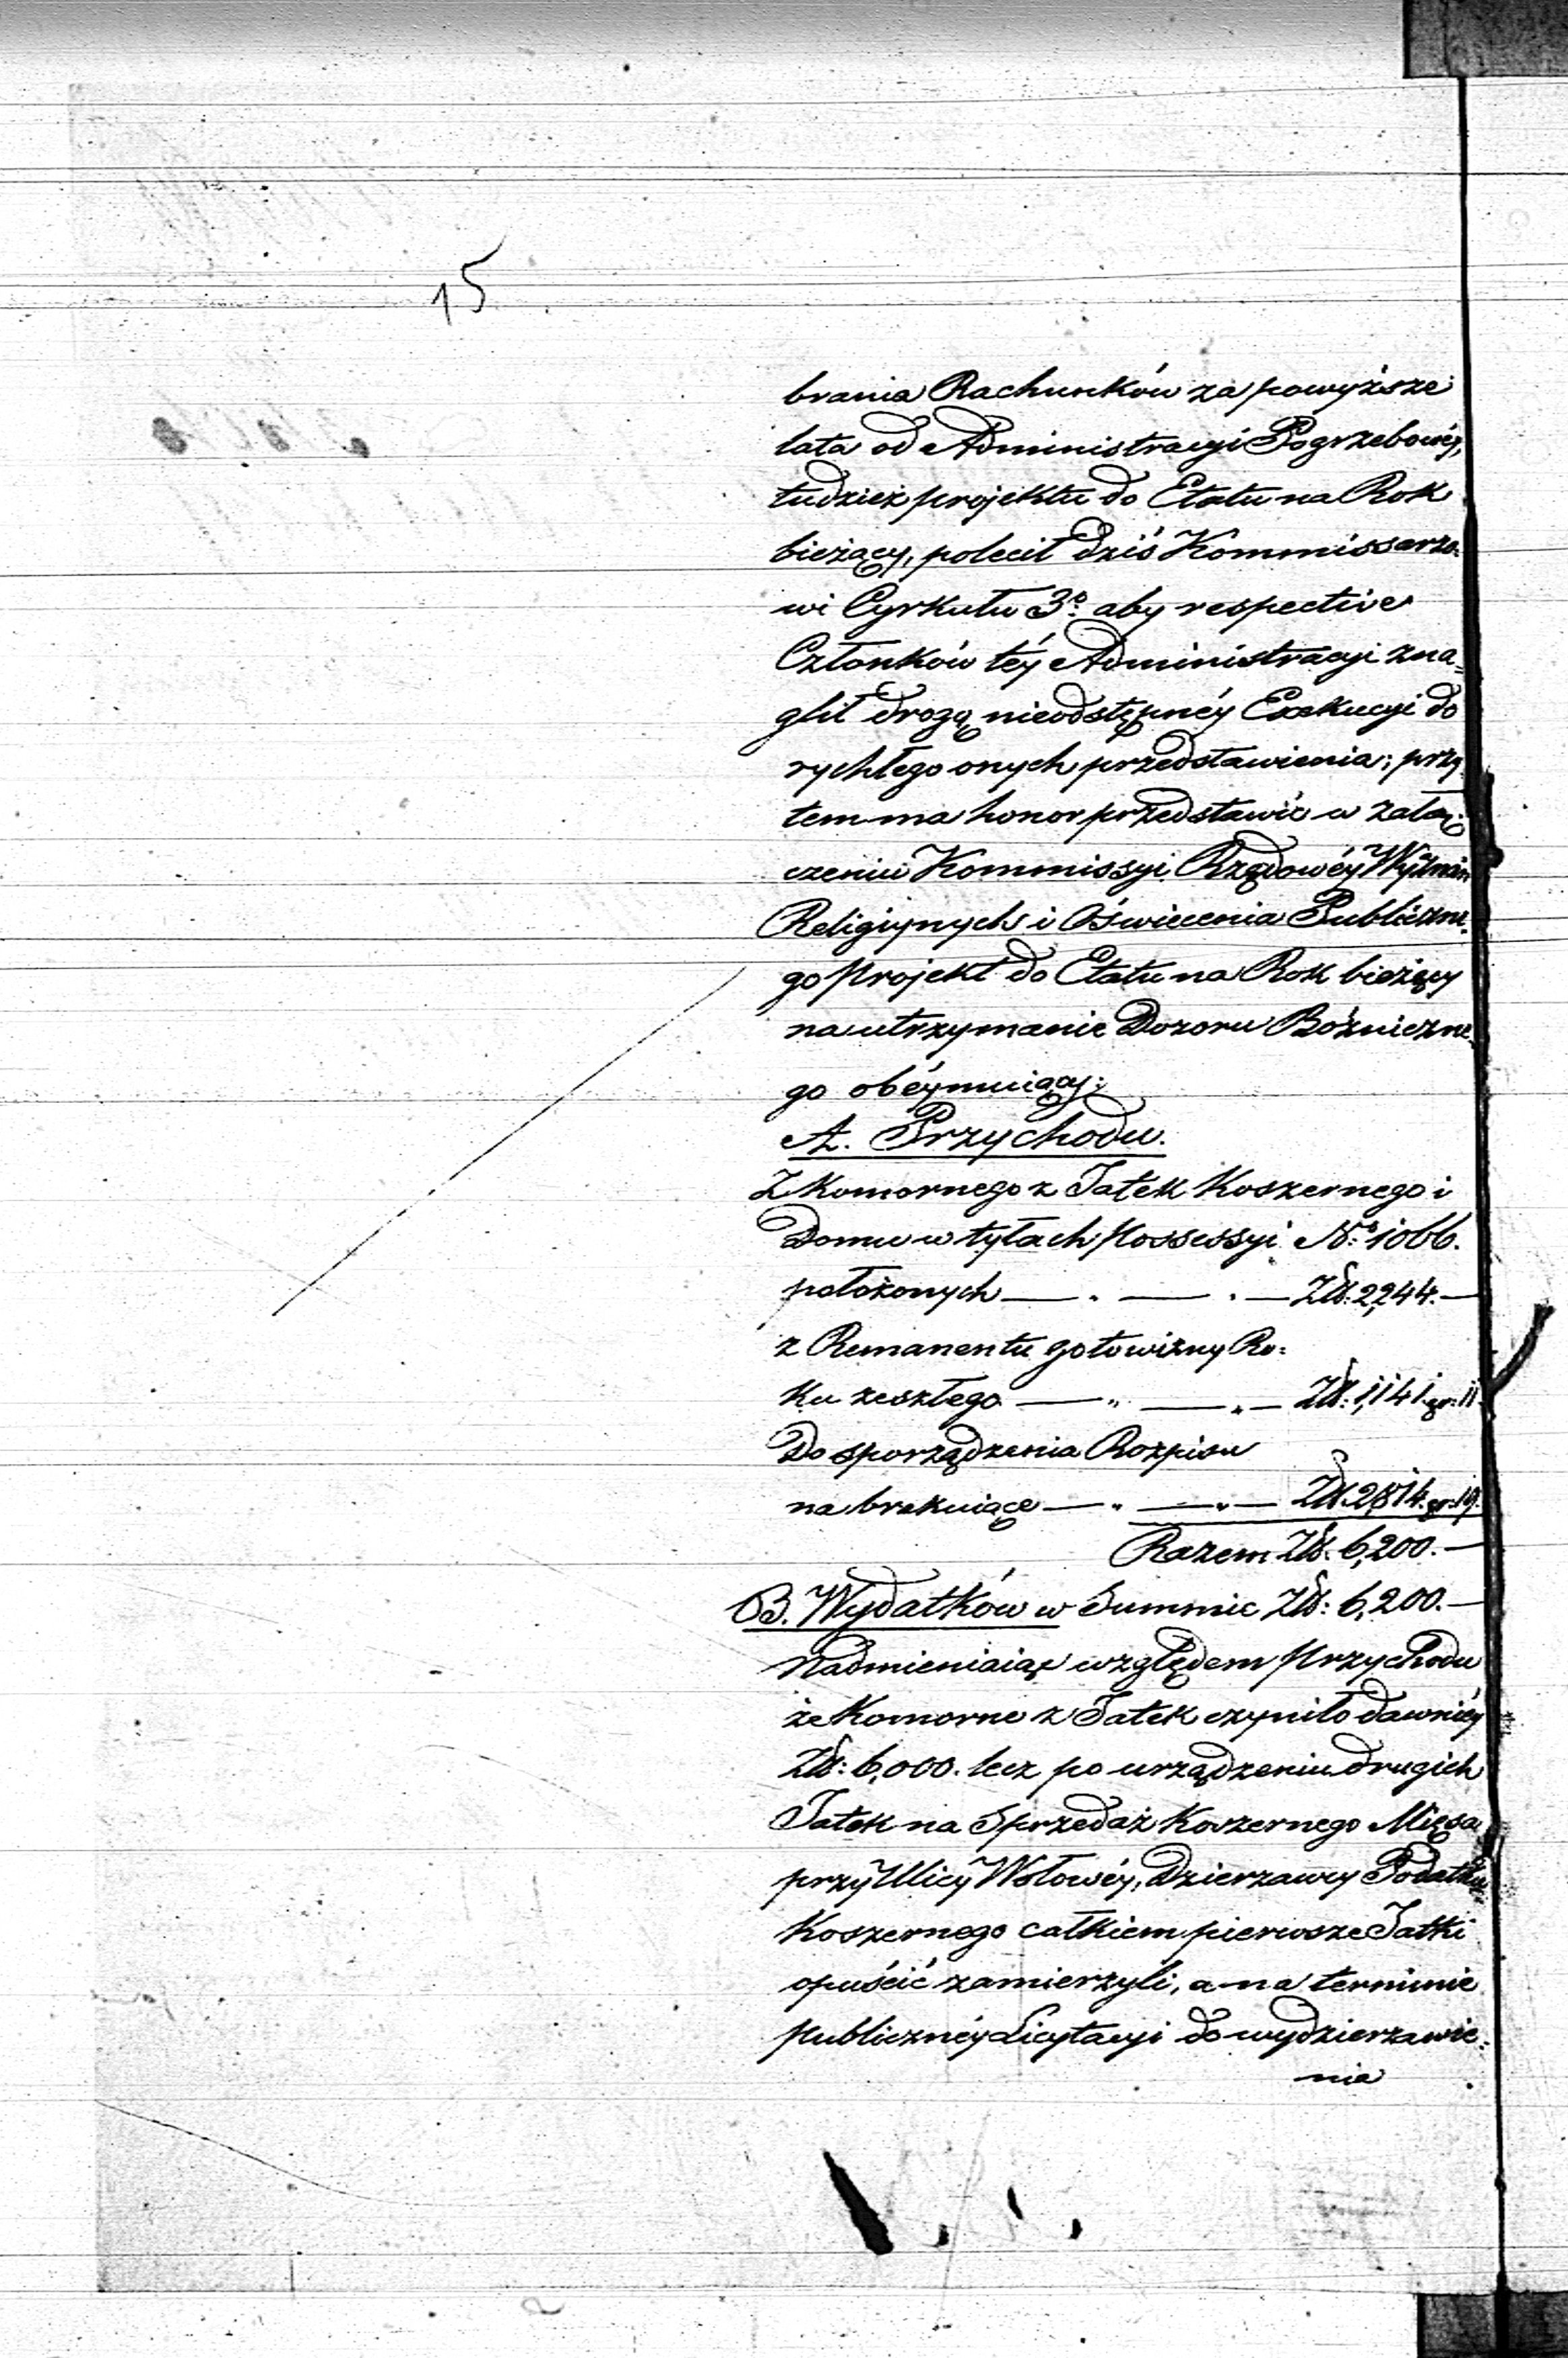 15
brania Rachunków za powyższe
lata od Administracyi Pogrzebowéy,
tudzież projektu do Etatu na Rok
bieżący, polecił dziś Kommissarzo-
wi Cyrkułu 3º aby respective
Członków téy Administracyi zna=
glił drogą nieodstępnéy Exekucyi do
rychłego onych przedstawienia; przy
tem ma honor przedstawić w załą-
czeniu Kommissyi Rządowéy Wyznań
Religiynych i Oświecenia Publiczne-
go projekt do Etatu na Rok bieżący
na utrzymanie Dozoru Bóżniczne-
go obéymuiący:
A. Przychodu.
Z Komornego z Jatek Koszernego i
Domu w tyłach Possessyi Nº 1066.
położonych — . — . — Zł: 2,244. —
z Remanentu gotowizny Ro=
ku zeszłego — „ — „ — Zł: 1,141. gr: 11.
Do sporządzenia Rozpisu
na brakuiące — „ — „ — Zł: 2,814. gr: 19.
Razem Zł: 6,200. —
B. Wydatków w Summie Zł: 6,200. —
Nadmieniaiąc względem Przychodu
że Komorne z Jatek czyniło dawniéy
Zł: 6,000. lecz po urządzeniu drugich
Jatek na Sprzedaż Koszernego Mięsa
przy Ulicy Wołowéy, Dzierzawcy Podatku
Koszernego całkiem pierwsze Jatki
opuścić zamierzyli, a na terminie
Publicznéy Licytacyi do wydzierzawie=
nia